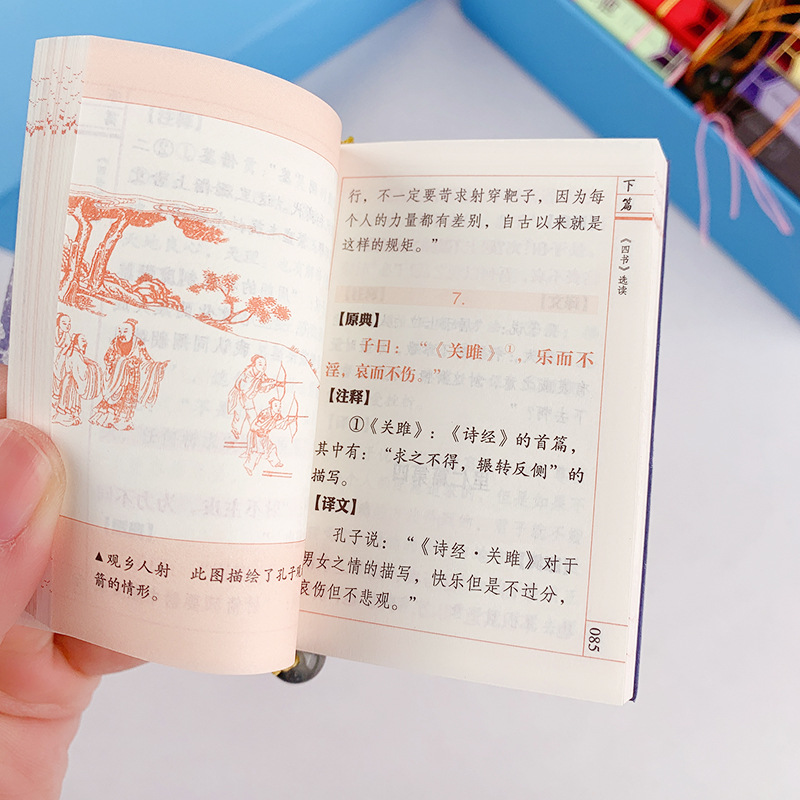 ▲观乡人射 此图描绘了孔子观
箭的情形。
行，不一定要苛求射穿靶子，因为每
个人的力量都有差别，自古以来就是
这样的规矩。”
7.
【原典】
子曰：“《关雎》①，乐而不
淫，哀而不伤。”
【注释】
①《关雎》：《诗经》的首篇，
其中有：“求之不得，辗转反侧”的
描写。
【译文】
孔子说：“《诗经·关雎》对于
男女之情的描写，快乐但是不过分，
哀伤但不悲观。”
下篇
《四书》选读
085